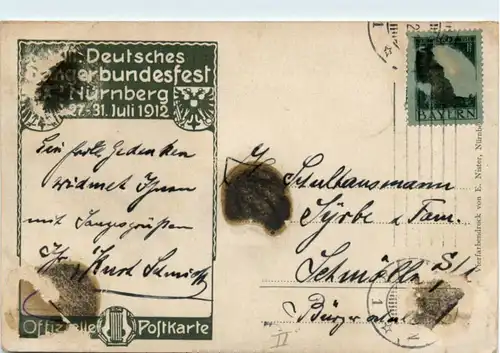 Deutsches
Sängerbundesfest
Nürnberg
27-31. Juli 1912
Ein frohes Gedenken
widmet Ihnen
mit Sangesgrüßen
Ihr Kurt Schmidt
Offizielle Postkarte
BAYERN
Vierfarbendruck von E. Nister, Nürnb
Schulhausmann
Syrbe u Fam.
Schmölln S/A
II